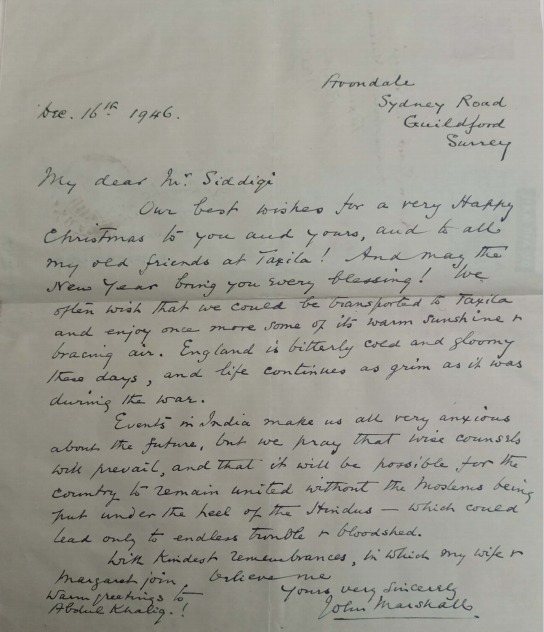 Avondale
Sydney Road
Guildford
Surrey
Dec. 16th 1946.
My dear Mr. Siddiqi
Our best wishes for a very Happy
Christmas to you and yours, and to all
my old friends at Taxila! And may the
New Year bring you every blessing! We
often wish that we could be transported to Taxila
and enjoy once more some of its warm sunshine &
bracing air. England is bitterly cold and gloomy
these days, and life continues as grim as it was
during the war.
Events in India make us all very anxious
about the future, but we pray that wise counsels
will prevail, and that it will be possible for the
country to remain united without the Moslems being
put under the heel of the Hindus — which could
lead only to endless trouble & bloodshed.
With kindest remembrances, in which my wife &
Margaret join, believe me
Yours very sincerely
John Marshall.
Warm greetings to
Abdul Khaliq.!